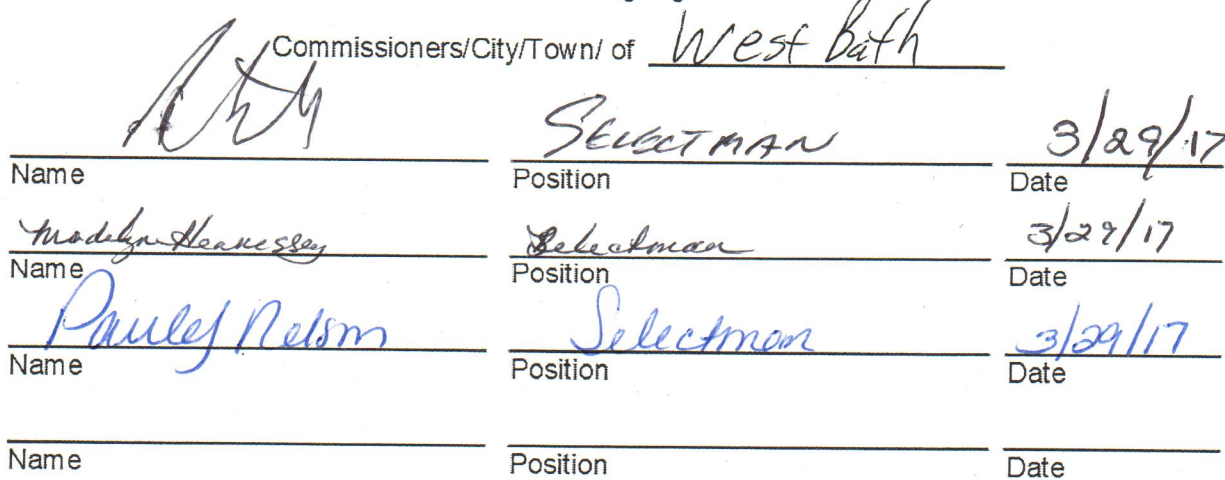 Commissioners/City/Town/ of West Bath
SELECTMAN 3/29/17
Name Position Date
Madelyn Hennessey Selectman 3/29/17
Name Position Date
Nelson Selectman 3/29/17
Name Position Date
Name Position Date